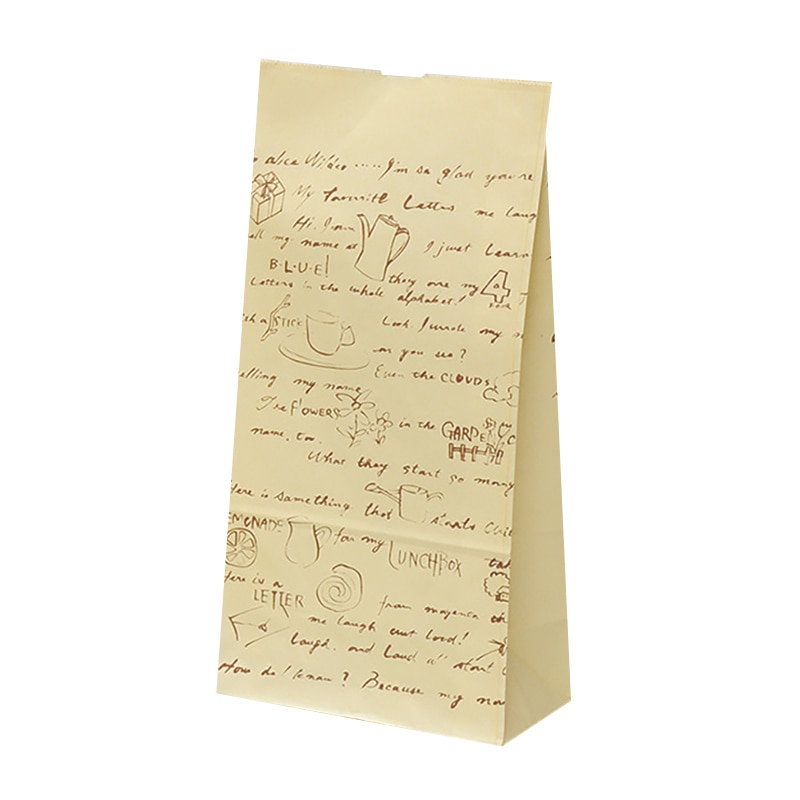 alice Wilder ..... I'm so glad you're
My favourite Letters me laug
Hi. I am
ell my name at I just learn
B·L·U·E! they are my 4
Letters in the whole alphabet!
STICK Look. I wrote my
can you see?
Even the CLOUDS
elling my name
The FLOWERS in the GARDEN
name, too.
What they start so many
Here is something that starts
LEMONADE for my LUNCHBOX
Here is a
LETTER from magenta
me laugh out loud!
laugh, and Loud all start
How do I know? Because my